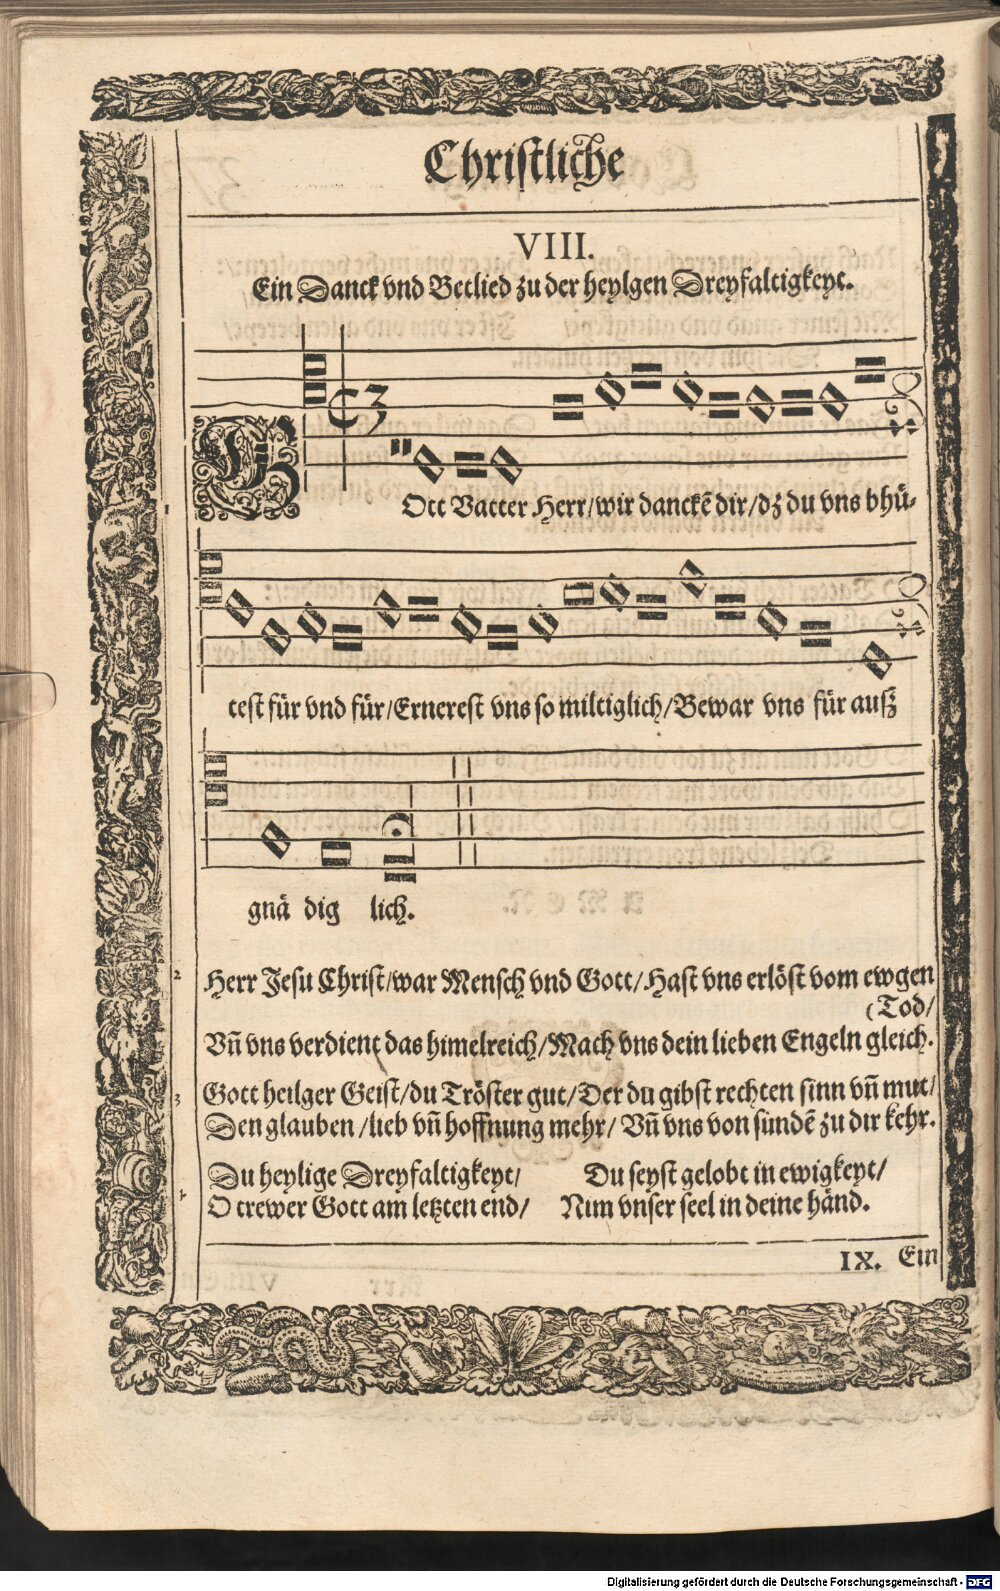 Christliche
VIII.
Ein Danck vnd Betlied zu der heylgen Dreyfaltigkeyt.
GOtt Vatter Herr/wir danckē dir/dz du vns bhü-
1
test für vnd für/Ernerest vns so miltiglich/Bewar vns für auß
gnä dig lich.
2 Herr Jesu Christ/war Mensch vnd Gott/Hast vns erlöst vom ewgen
(Tod/
Vñ vns verdient das himelreich/Mach vns dein lieben Engeln gleich.
3 Gott heilger Geist/du Tröster gut/Der du gibst rechten sinn vñ mut/
Den glauben/lieb vñ hoffnung mehr/Vñ vns von sündē zu dir kehr.
Du heylige Dreyfaltigkeyt/ Du seyst gelobt in ewigkeyt/
O trewer Gott am letzten end/ Nim vnser seel in deine händ.
IX. Ein
Digitalisierung gefördert durch die Deutsche Forschungsgemeinschaft - DFG